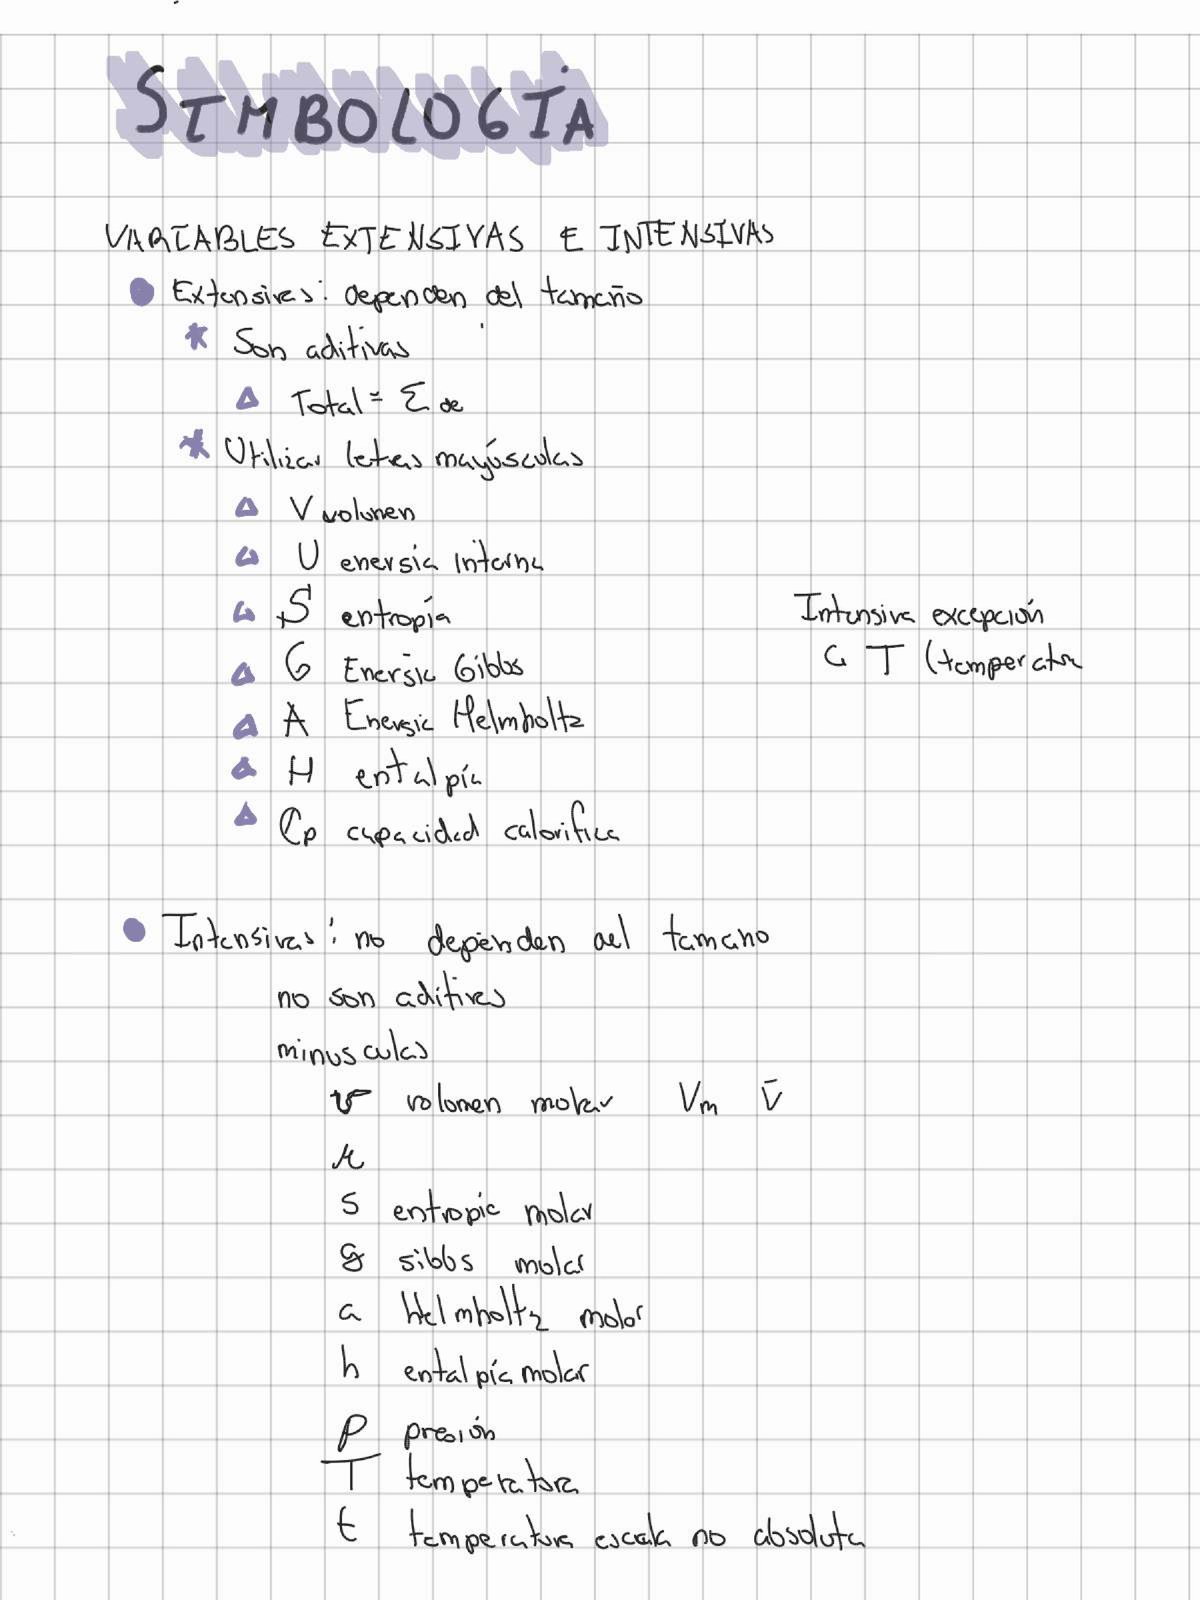 SIMBOLOGÍA
VARIABLES EXTENSIVAS E INTENSIVAS
Extensivas: dependen del tamaño
Son aditivas
Total = Σ de
Utilizar letras mayúsculas
V volumen
U energía interna
S entropía
Intensiva excepción
G Energía Gibbs
T (temperatura
A Energía Helmholtz
H entalpía
Cp capacidad calorifica
Intensivas: no dependen del tamano
no son aditivas
minusculas
v volumen molar Vm V̄
μ
s entropia molar
g gibbs molar
a Helmholtz molar
h entalpía molar
p presión
T temperatura
t temperatura escala no absoluta